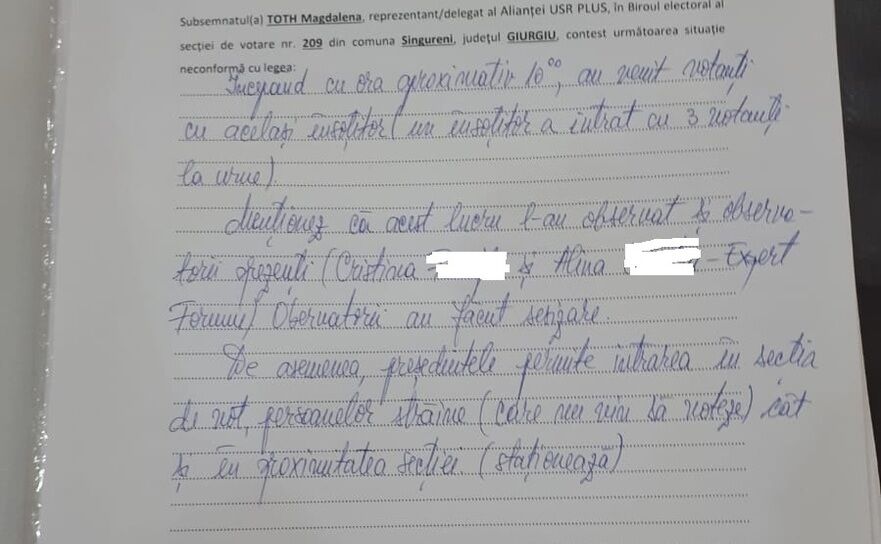 Subsemnatul(a) TOTH Magdalena, reprezentant/delegat al Alianței USR PLUS, în Biroul electoral al
secției de votare nr. 209 din comuna Singureni, județul GIURGIU, contest următoarea situație
neconformă cu legea:
Începând cu ora aproximativ 10⁰⁰, au venit votanți
cu același însoțitor (un însoțitor a intrat cu 3 votanți
la urne)
Menționez că acest lucru l-au observat și observa-
torii prezenți (Cristina și Alina - Expert
Forum) Obervatorii au făcut sesizare.
De asemenea, președintele permite intrarea în secția
de vot, persoanelor străine (care nu vin să voteze) cât
și în proximitatea secției (staționează)